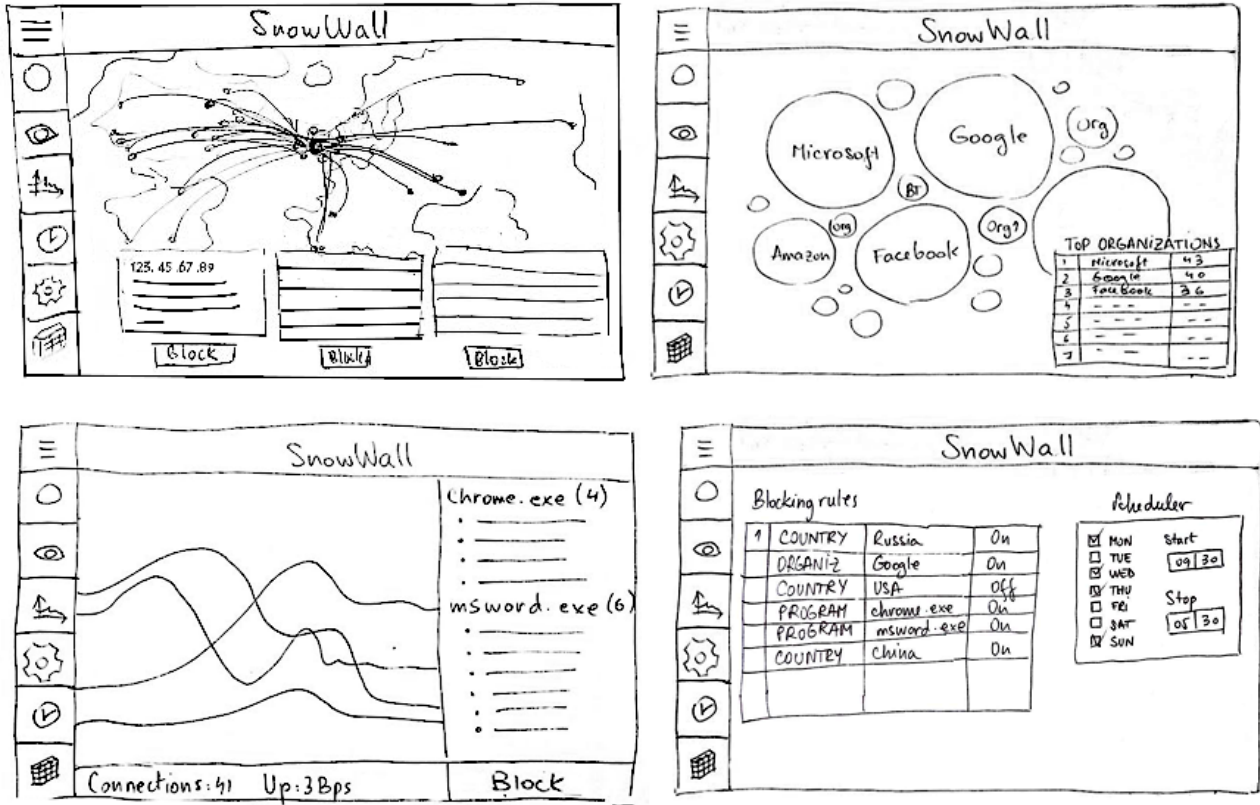 SnowWall
123.45.67.89
Block
Block
Block
SnowWall
Microsoft
Google
Org
BT
Org
Org?
Amazon
Facebook
TOP ORGANIZATIONS
1 Microsoft 43
2 Google 40
3 FaceBook 36
4 - - - - -
5 - - - - -
6 - - - -
7 - - - -
SnowWall
Chrome.exe (4)
msword.exe (6)
Connections:41 Up:3Bps Block
SnowWall
Blocking rules
1 COUNTRY Russia On
ORGANIZ Google On
COUNTRY USA Off
PROGRAM chrome.exe On
PROGRAM msword.exe On
COUNTRY China On
Scheduler
MON
TUE
WED
THU
FRI
SAT
SUN
Start
09 30
Stop
05 30